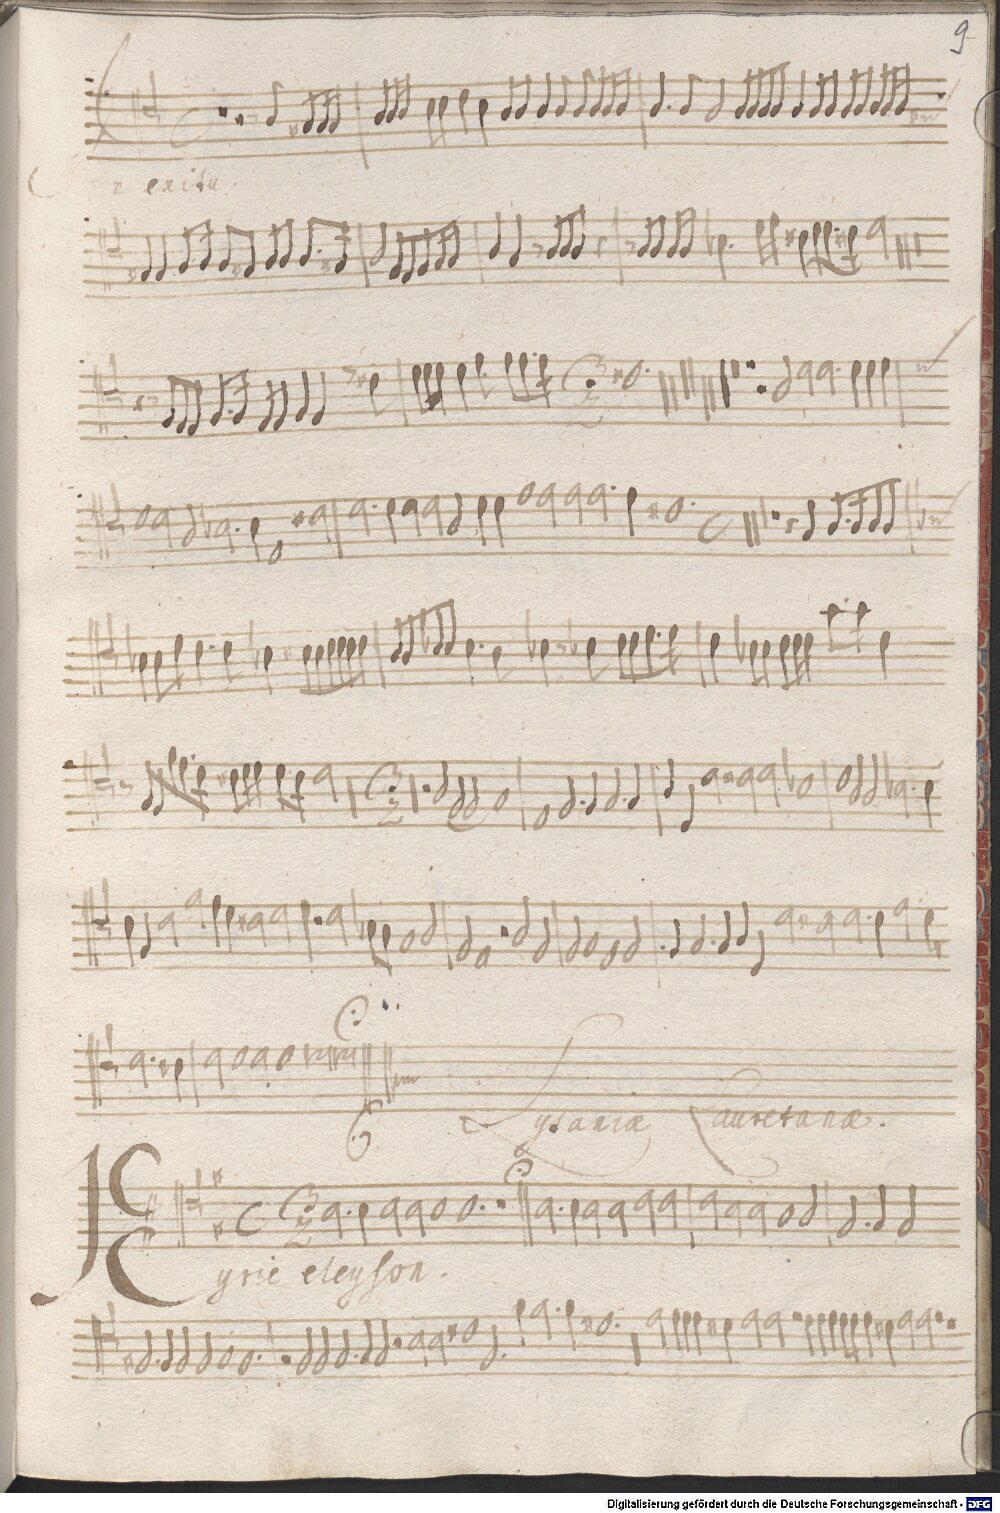 9
In exitu.
Lytaniæ Lauretanæ.
Kyrie eleyson.
Digitalisierung gefördert durch die Deutsche Forschungsgemeinschaft - DFG